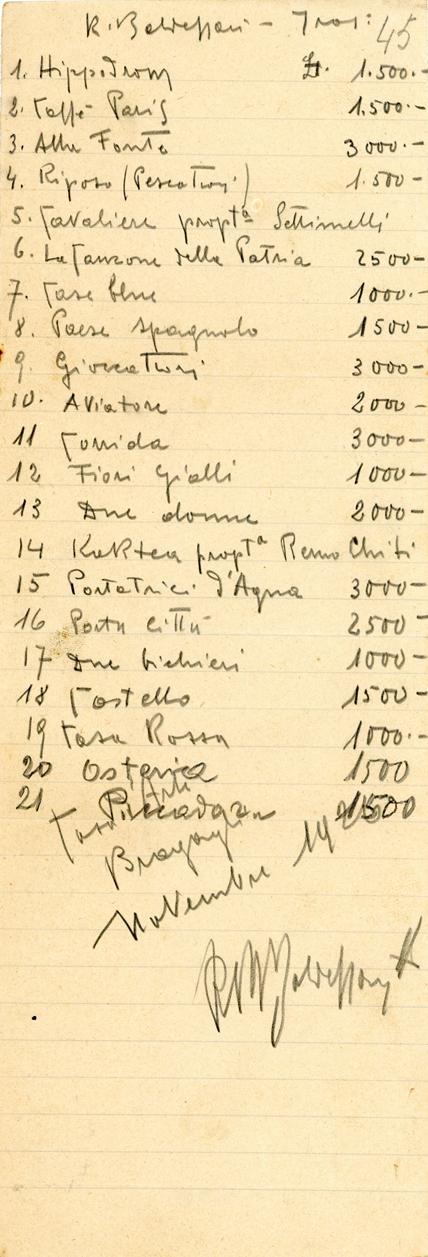 R. Baldessari - 45
1. Hippodrom £. 1.500.-
2. Caffè Paris 1.500.-
3. Alla Fonte 3000.-
4. Riposo (Pescatori) 1.500-
5. Cavaliere proptà Settimelli
6. La Canzone della Patria 2500-
7. Case blue 1000.-
8. Paese spagnolo 1500-
9. Giocatori 3000-
10. Aviatore 2000-
11 Corrida 3000-
12 Fiori Gialli 1000-
13 Due donne 2000-
14 proptà Remo Chiti
15 Portatrici d'Aqua 3000-
16 Porta città 2500-
17 Due bichieri 1000-
18 Castello 1500-
19 Casa Rossa 1000.-
20 Osteria 1500
21 1500
Casa
Bragaglia
Novembre